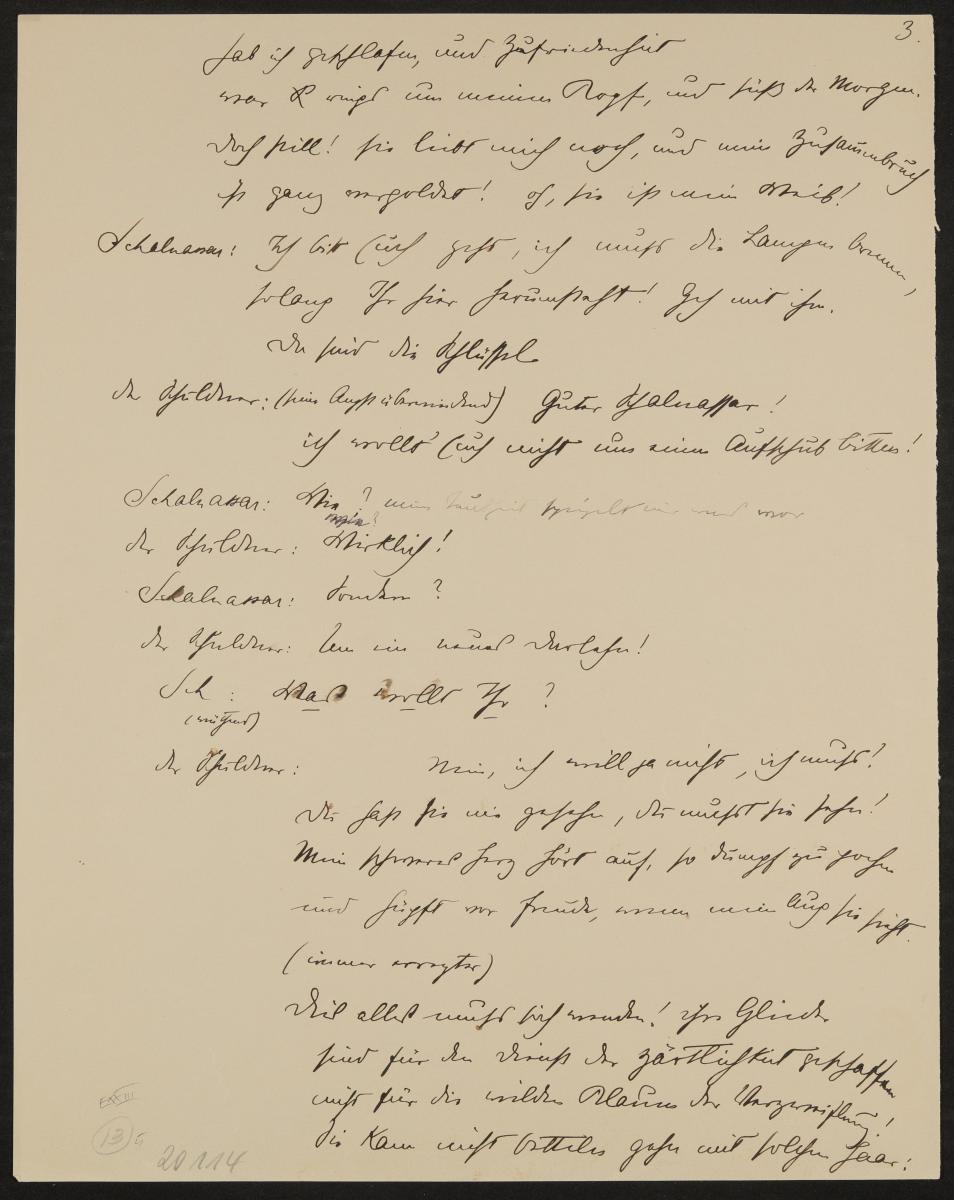 3.
hab ich geschlafen, und Zufriedenheit
war rings um meinen Kopf, und süß der Morgen.
Doch still! sie liebt mich noch, und mein Zusammenbruch
ist ganz vergoldet! oh, sie ist mein Weib!
Schalnassar: Ich bitt Euch geht, ich muss die Lampen brennen,
solang Ihr hier herumsteht! Geh mit ihm.
Da sind die Schlüssel.
der Schuldner: (seine Angst überwindend) Guter Schalnassar!
ich wollt' Euch nicht um einen Aufschub bitten!
Schalnassar: Wie? mein
nein?
der Schuldner: Wirklich!
Schalnassar: Sondern?
der Schuldner: Um ein neues Darlehn!
Sch: Was wollt Ihr?
(wüthend)
der Schuldner: Nein, ich will ja nicht, ich muss!
Du hast sie nie gesehn, du musst sie sehn!
Mein schweres Herz hört auf, so dumpf zu pochen
und hüpft vor Freude, wenn mein Aug sie sieht.
(immer erregter)
Dies alles muss sich wenden! ihre Glieder
sind für den Dienst der Zärtlichkeit geschaffen
nicht für die wilden Klauen der Verzweiflung!
Sie kann nicht betteln gehn mit solchem Haar:
E XIII
13 b
20114